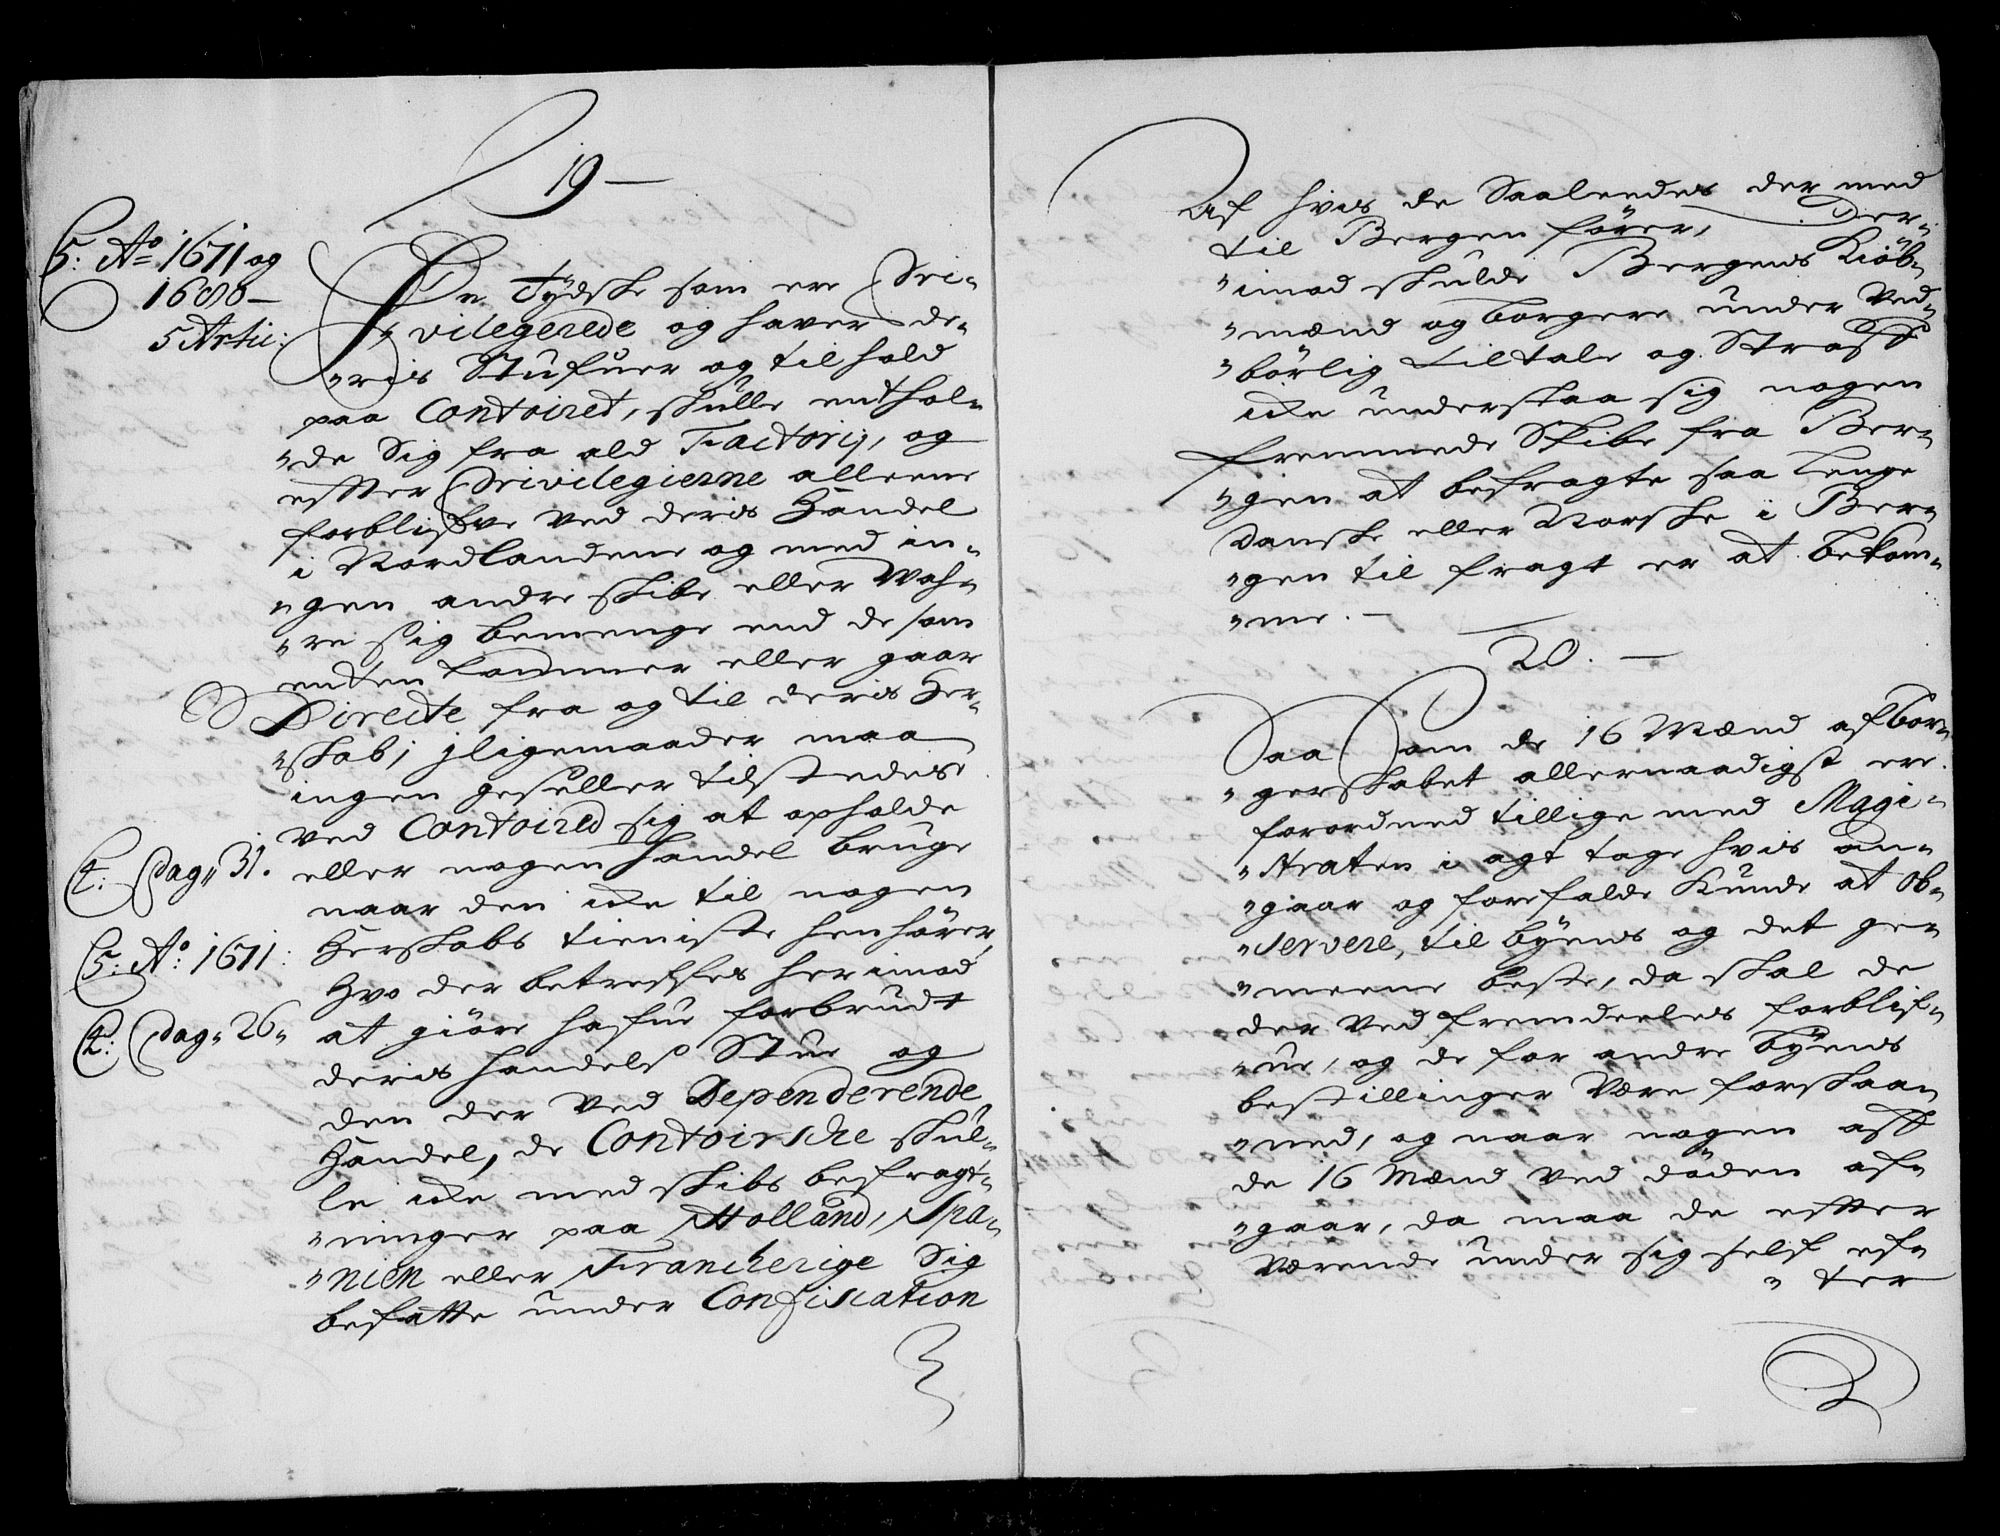 19
5: Ao 1671 og
1680
5 Artic:
De Tydske som ere Pri-
vilegerede og hafver de-
ris Stufuer og tilhold
paa Contoiret, skulle enthol-
de Sig fra ald Factorij, og
efter Privilegierne alleene
forblifve ved deris Handel
i Nordlandene og med in-
gen andre skibe eller Wah-
re sig bemenge end de som
enten kommer eller gaar
Directe fra og til deris Her-
skab, jligemaader maa
ingen geseller tilstedes
ved Contoired sig at opholde
L: Pag. 31.
eller nogen Handel bruge
naar den icke til nogen
5: Ao: 1671:
Herskabs tieniste henhörer,
Hvo der betreffes herimod
L: Pag. 26
at giöre hafue forbrudt
deris handels Stue og
den der ved Dependerende
Handel, de Contoirsche skul-
le icke med skibs befragt-
ninger paa Holland, Spa-
nien eller Franckerige Sig
befatte under Confiscation
Af hvis de Saaleedes der med
til Bergen förer, Der-
imod skulde Bergens Kiöb-
mænd og borgere under Ved-
börlig tiltale og Straff
icke understaa sig nogen
fremmede Skibe fra Ber-
gen at befragte saa lenge
danske eller Norske i Ber-
gen til fragt er at bekom-
me.
20.
Saa som de 16 Mænd af bor-
gerskabet allernaadigst ere
forordned tillige med Magi-
straten i agt tage hvis an-
gaar og forefalde kunde at ob-
servere, til byens og det ge-
meene beste, da skal de
der ved fremdeeles forblif-
ue, og de for andre byens
bestillinger være forskaa-
ned, og naar nogen aff
de 16 Mænd ved döden af-
gaar, da maa de efter
værende under sig self ef-
ter